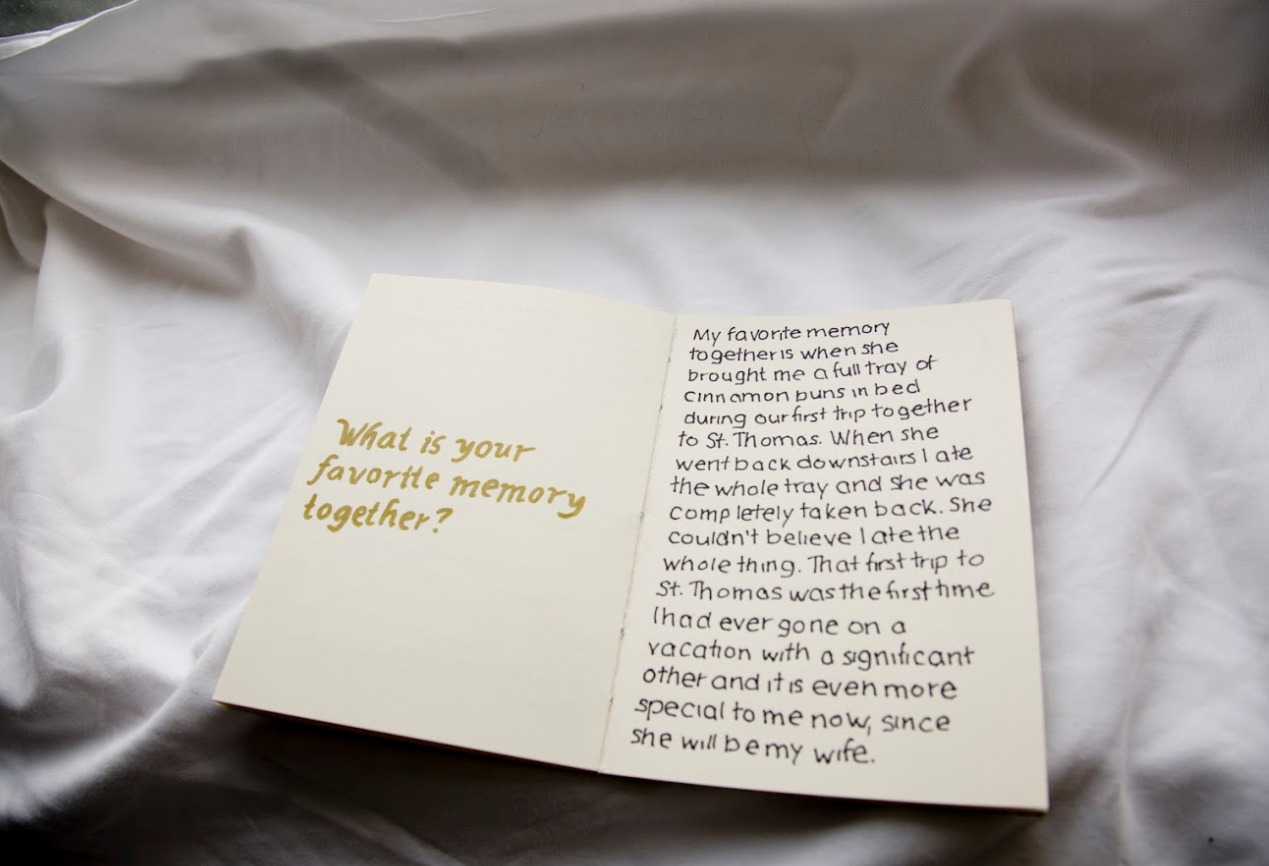 What is your
favorite memory
together?
My favorite memory
together is when she
brought me a full tray of
cinnamon buns in bed
during our first trip together
to St. Thomas. When she
went back downstairs I ate
the whole tray and she was
completely taken back. She
couldn't believe I ate the
whole thing. That first trip to
St. Thomas was the first time
I had ever gone on a
vacation with a significant
other and it is even more
special to me now, since
she will be my wife.